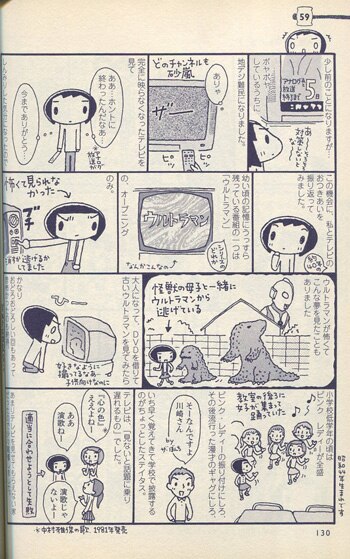 59
少し前のことになりますが
ボヤボヤ
しているうちに
地デジ難民になりました。
アナログ
放送
終了まで
5日
ああっ
対策しないと…
どのチャンネルも
砂嵐
ありゃ
ザー
ピッ
ピッ
完全に映らなくなったテレビを
見て
ああ…ホントに
終わったんだなあ…
今までありがとう…
この機会に、私とテレビの
おつきあいを
振り返って
みました。
幼い頃の記憶にうっすら
残っている番組の一つは
「ウルトラマン」
の、オープニング
のみ。
ウルトラマン
なんかこんなの
怖くて見られな
かったー
ウルトラマンが怖くて
こんな夢を見たことも
ありました
怪獣の母子と一緒に
ウルトラマンから
逃げている
大人になって、DVDを借りて
古いウルトラマンを見てみたら
かなり
おどろおどろしい回もあって
小学校低学年の頃は
ピンク・レディーが全盛
教室の後ろに
女子が集まって
ピンク・レディーの振り付けにしろ、
その後流行った漫才のギャグにしろ、
そーなんですよ
川崎さん
いち早く覚えてきて学校で披露する
のがちょっとしたステイタス。
テレビは、「見ないと話題に乗り
遅れるもの」でした。
『心の色』
ええよね!
ああ
演歌ね!
演歌じゃ
ないよ!
適当に合わせようとして失敗
※中村雅俊の歌、1981年発売
昭和44年生まれです
130